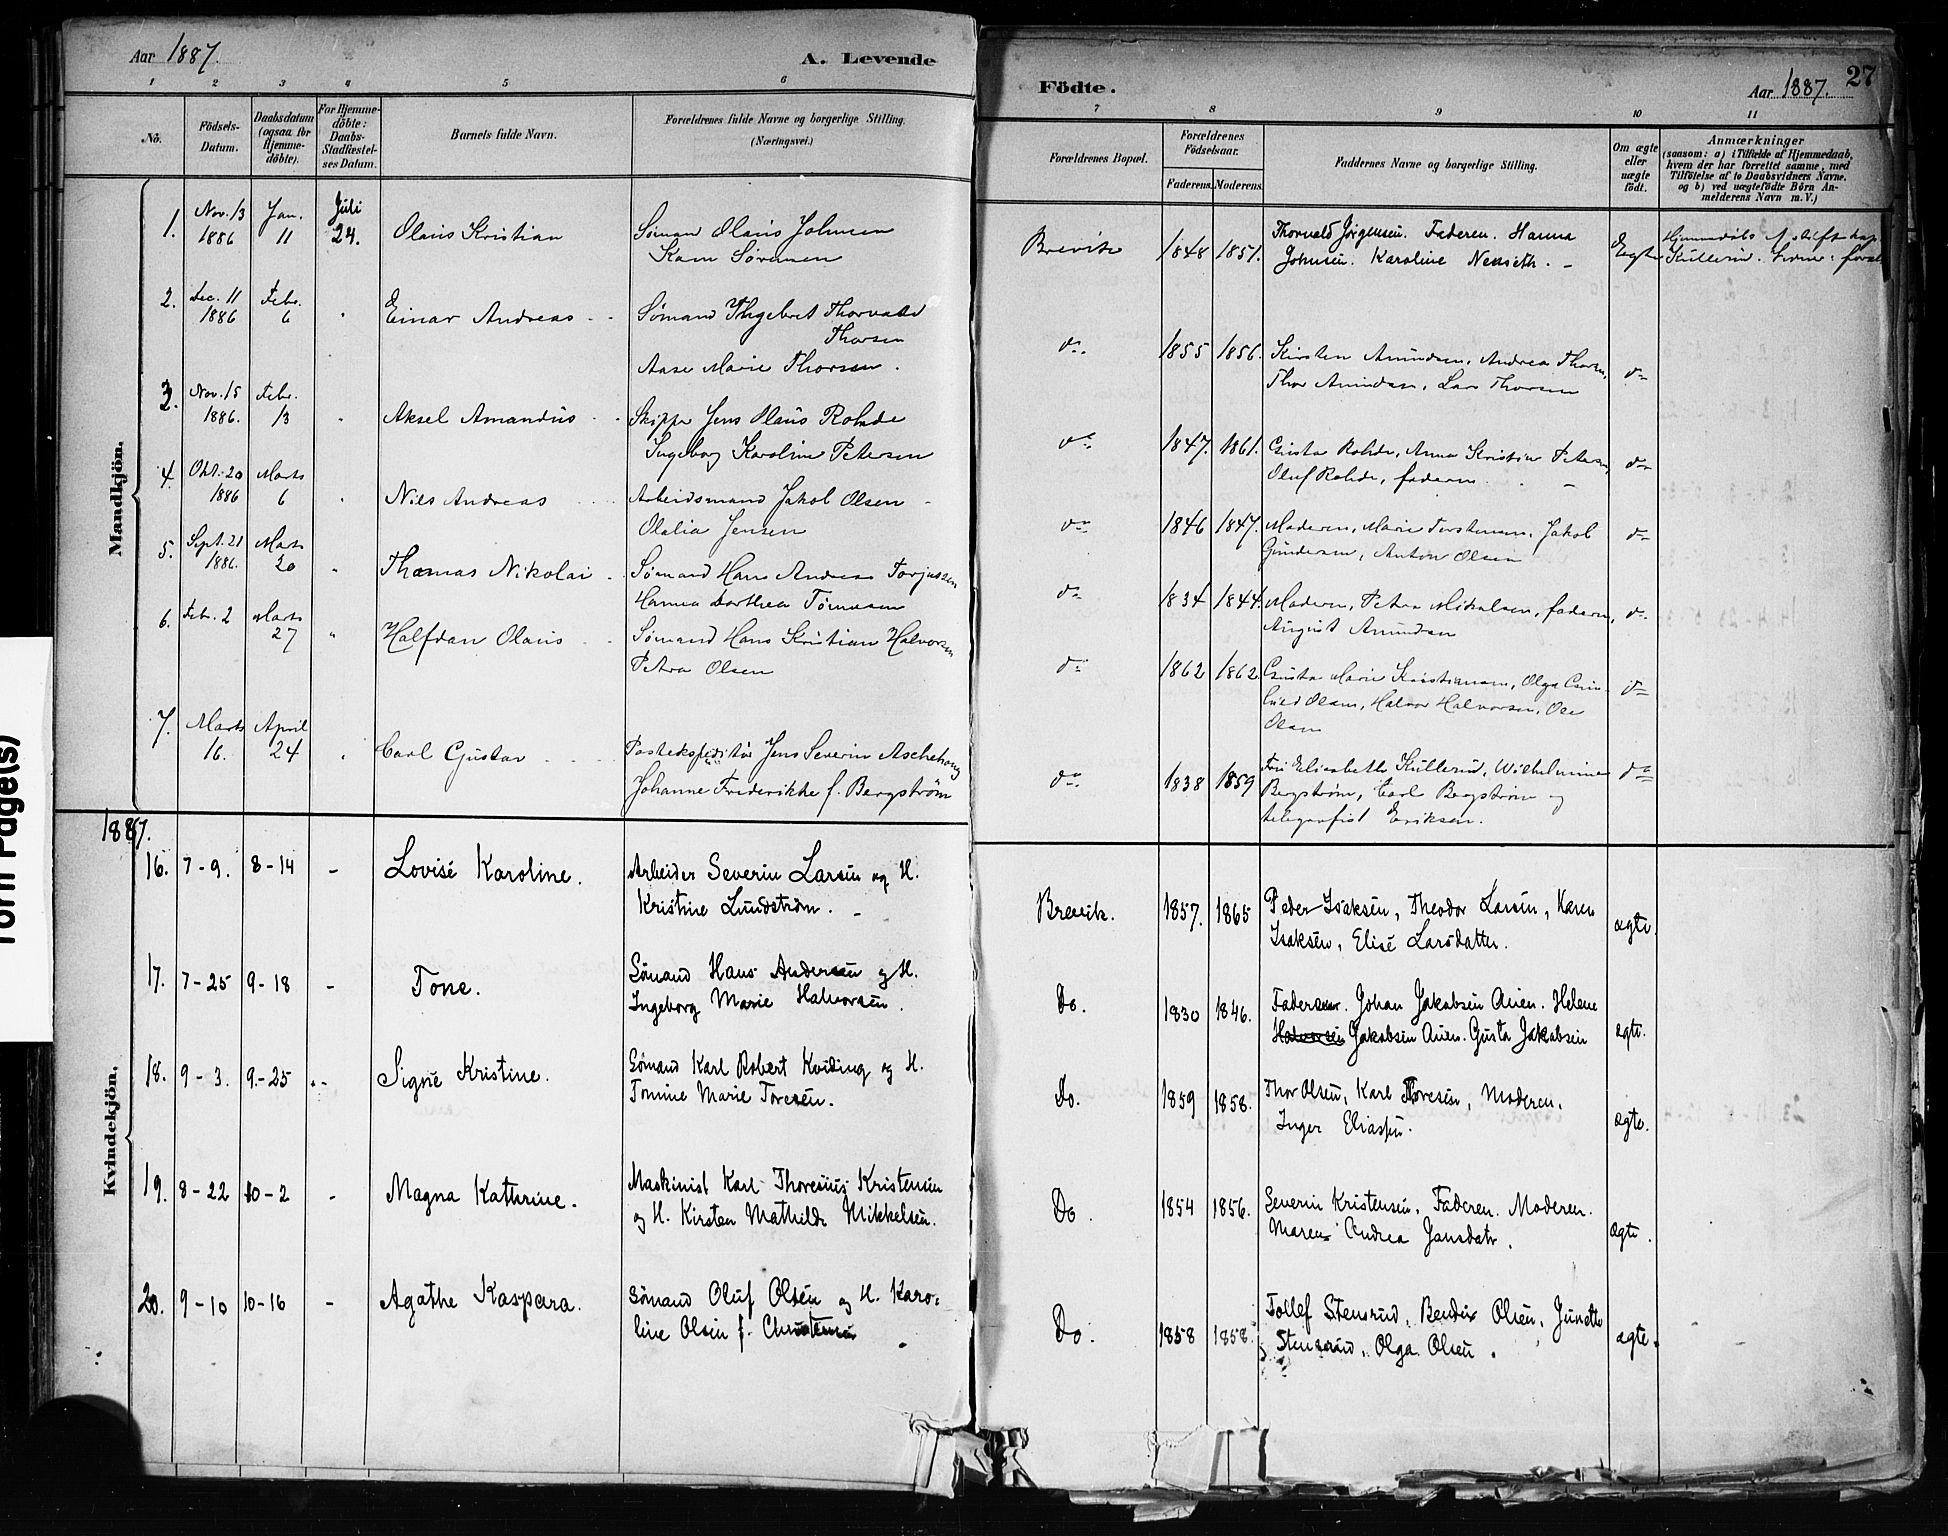 Aar 1887.
A. Levende
1 2 3 4 5 6
No. Födsels-Datum. Daabsdatum (ogsaa for Hjemme-döbte). For Hjemme-döbte: Daabs-Stadfæstel-ses Datum. Barnets fulde Navn. Forældrenes fulde Navne og borgerlige Stilling. (Næringsvei.)
Mandkjön.
1. Nov. 13 1886 Jan. 11 Juli 24. Olaus Kristian Sömand Olaus Johnsen
Karn Sörensen
2. Dec. 11 1886 Febr. 6 " Einar Andreas Sömand Thorvald
Thorsen
Aase Marie Thorsen.
3. Nov. 15 1886. Febr. 13 " Aksel Amandus Skipper Jens Olaus Rohde
Ingeborg Karoline Petersen
4. Okt. 20 1886 Marts 6 " Nils Andreas Arbeidsmand Jakob Olsen
Olalia Jensen
5. Sept. 21 1886. Marts 20 " Thomas Nikolai Sömand Hans Andreas Torjussen
Hanna Dorthea
6. Febr. 2 Marts 27 " Halfdan Olaus Sömand Hans Kristian Halvorsen
Petra Olsen
7. Marts 16. April 24 " Carl Gustav Postekspeditör Jens Severin Aschehoug
Johanne Frederikke f. Bergström
1887.
Kvindekjön.
16. 7-9. 8-14 - Lovise Karoline. Arbeider Severin Larsen og H.
Kristine Lundström.
17. 7-25 9-18 - Tone. Sömand Hans Andersen og H.
Ingeborg Marie Halvorsen.
18. 9-3. 9-25 - Signe Kristine. Sömand Karl Robert Kviding og H.
Tomine Marie Toresen.
19. 8-22 10-2 - Magna Kathrine. Maskinist Karl Thoresius Kristensen
og H. Kirsten Mathilde Mikkelsen.
20. 9-10 10-16 - Agathe Kaspara. Sömand Oluf Olsen og H. Karo-
line Olsen f. Christensen
27
Födte.
Aar 1887.
7 8 9 10 11
Forældrenes Bopæl. Forældrenes Födselsaar. Faderens. Moderens. Faddernes Navne og borgerlige Stilling. Om ægte eller uægte födt. Anmærkninger (saasom: a) i Tilfælde af Hjemmedaab, hvem der har forrettet samme, med Tilföielse af to Daabsvidners Navne, og b) ved uægtefödte Börn An-melderens Navn m. V.)
Brevik 1848 1851. Thorvald Jörgensen. Faderen. Hanna
Johnsen. Karoline Nenseth. - Ægte Hjemmedöbt af
Kullerud.
do. 1855 1856. Kirsten Amundsen, Andrea Thorsen,
Thor Amundsen, Lars Thorsen do
do 1847. 1861. Gusta Rohde, Anna Kristine Petersen,
Oluf Rohde, faderen. do
do 1846 1847. Moderen, Marie Torstensen, Jakob
Gundersen, Anton Olsen do
do 1834 1844. Moderen, Petra Mikalsen, faderen,
August Amundsen do.
do 1862 1862 Gusta Marie Kristiansen, Olga
Olsen, Halvor Halvorsen, Ole
Olsen do
do. 1838 1859 Elisabeth Kullerud, Wilhelmine
Bergström, Carl Bergström og
telegrafist Eriksen. do
Brevik. 1857. 1865 Peder Isaksen, Theodor Larsen, Karen
Isaksen, Elise Larsdatter. ægte.
Do. 1830 1846. Faderen. Johan Jakobsen Auen. Helene
Halvorsen Jakobsen Auen. Gusta Jakobsen ægte.
Do. 1859 1858. Thor Olsen, Karl Toresen, Moderen.
Inger Eliassen. ægte.
Do. 1854 1856. Severin Kristensen. Faderen. Moderen.
Maren Andrea Jansdatr. ægte.
Do. 1858 1858. Tollef Stensrud, Bendix Olsen, Junette
Stensrud, Olga Olsen. ægte.
Torn Page(s)